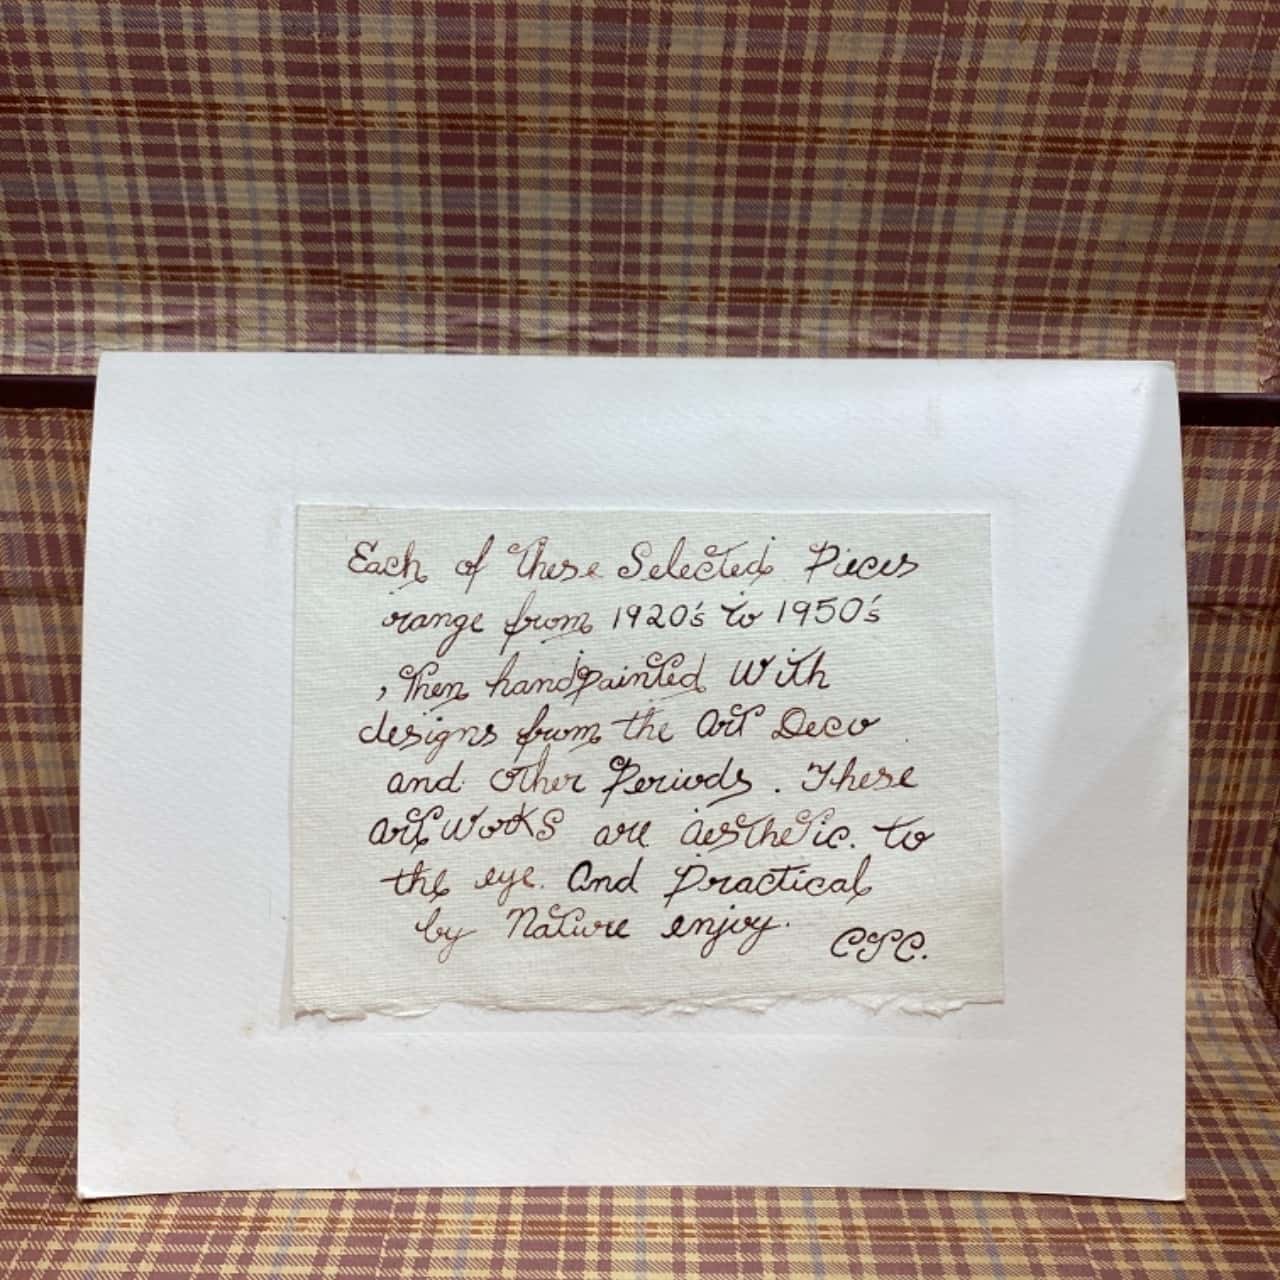 Each of These Selected Pieces
range from 1920's to 1950's
, Then handpainted With
designs from the Art Deco
and other Periods. These
artworks are aesthetic. to
the eye. And Practical
by Nature enjoy.